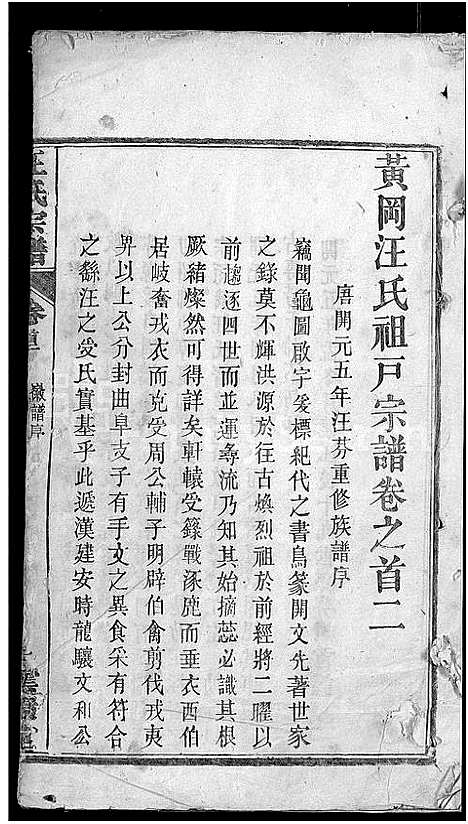 黃岡汪氏祖戸宗譜卷之首二
唐開元五年汪芬重修族譜序
竊聞龜圖啟宇爰標紀代之書鳥篆開文先著世家
之錄莫不輝洪源於往古煥烈祖於前經將二曜以
前趨逐四世而並運尋流乃知其始摘蕊必識其根
厥緒燦然可得詳矣軒轅受籙戰涿鹿而垂衣西伯
居岐奮戎衣而兌受周公輔子明辟伯禽剪伐戎夷
畀以上公分封曲阜支子有手文之異食采有符合
之繇汪之受氏實基乎此遞漢建安時龍驤文和公
汪氏宗譜
卷首
徽譜序